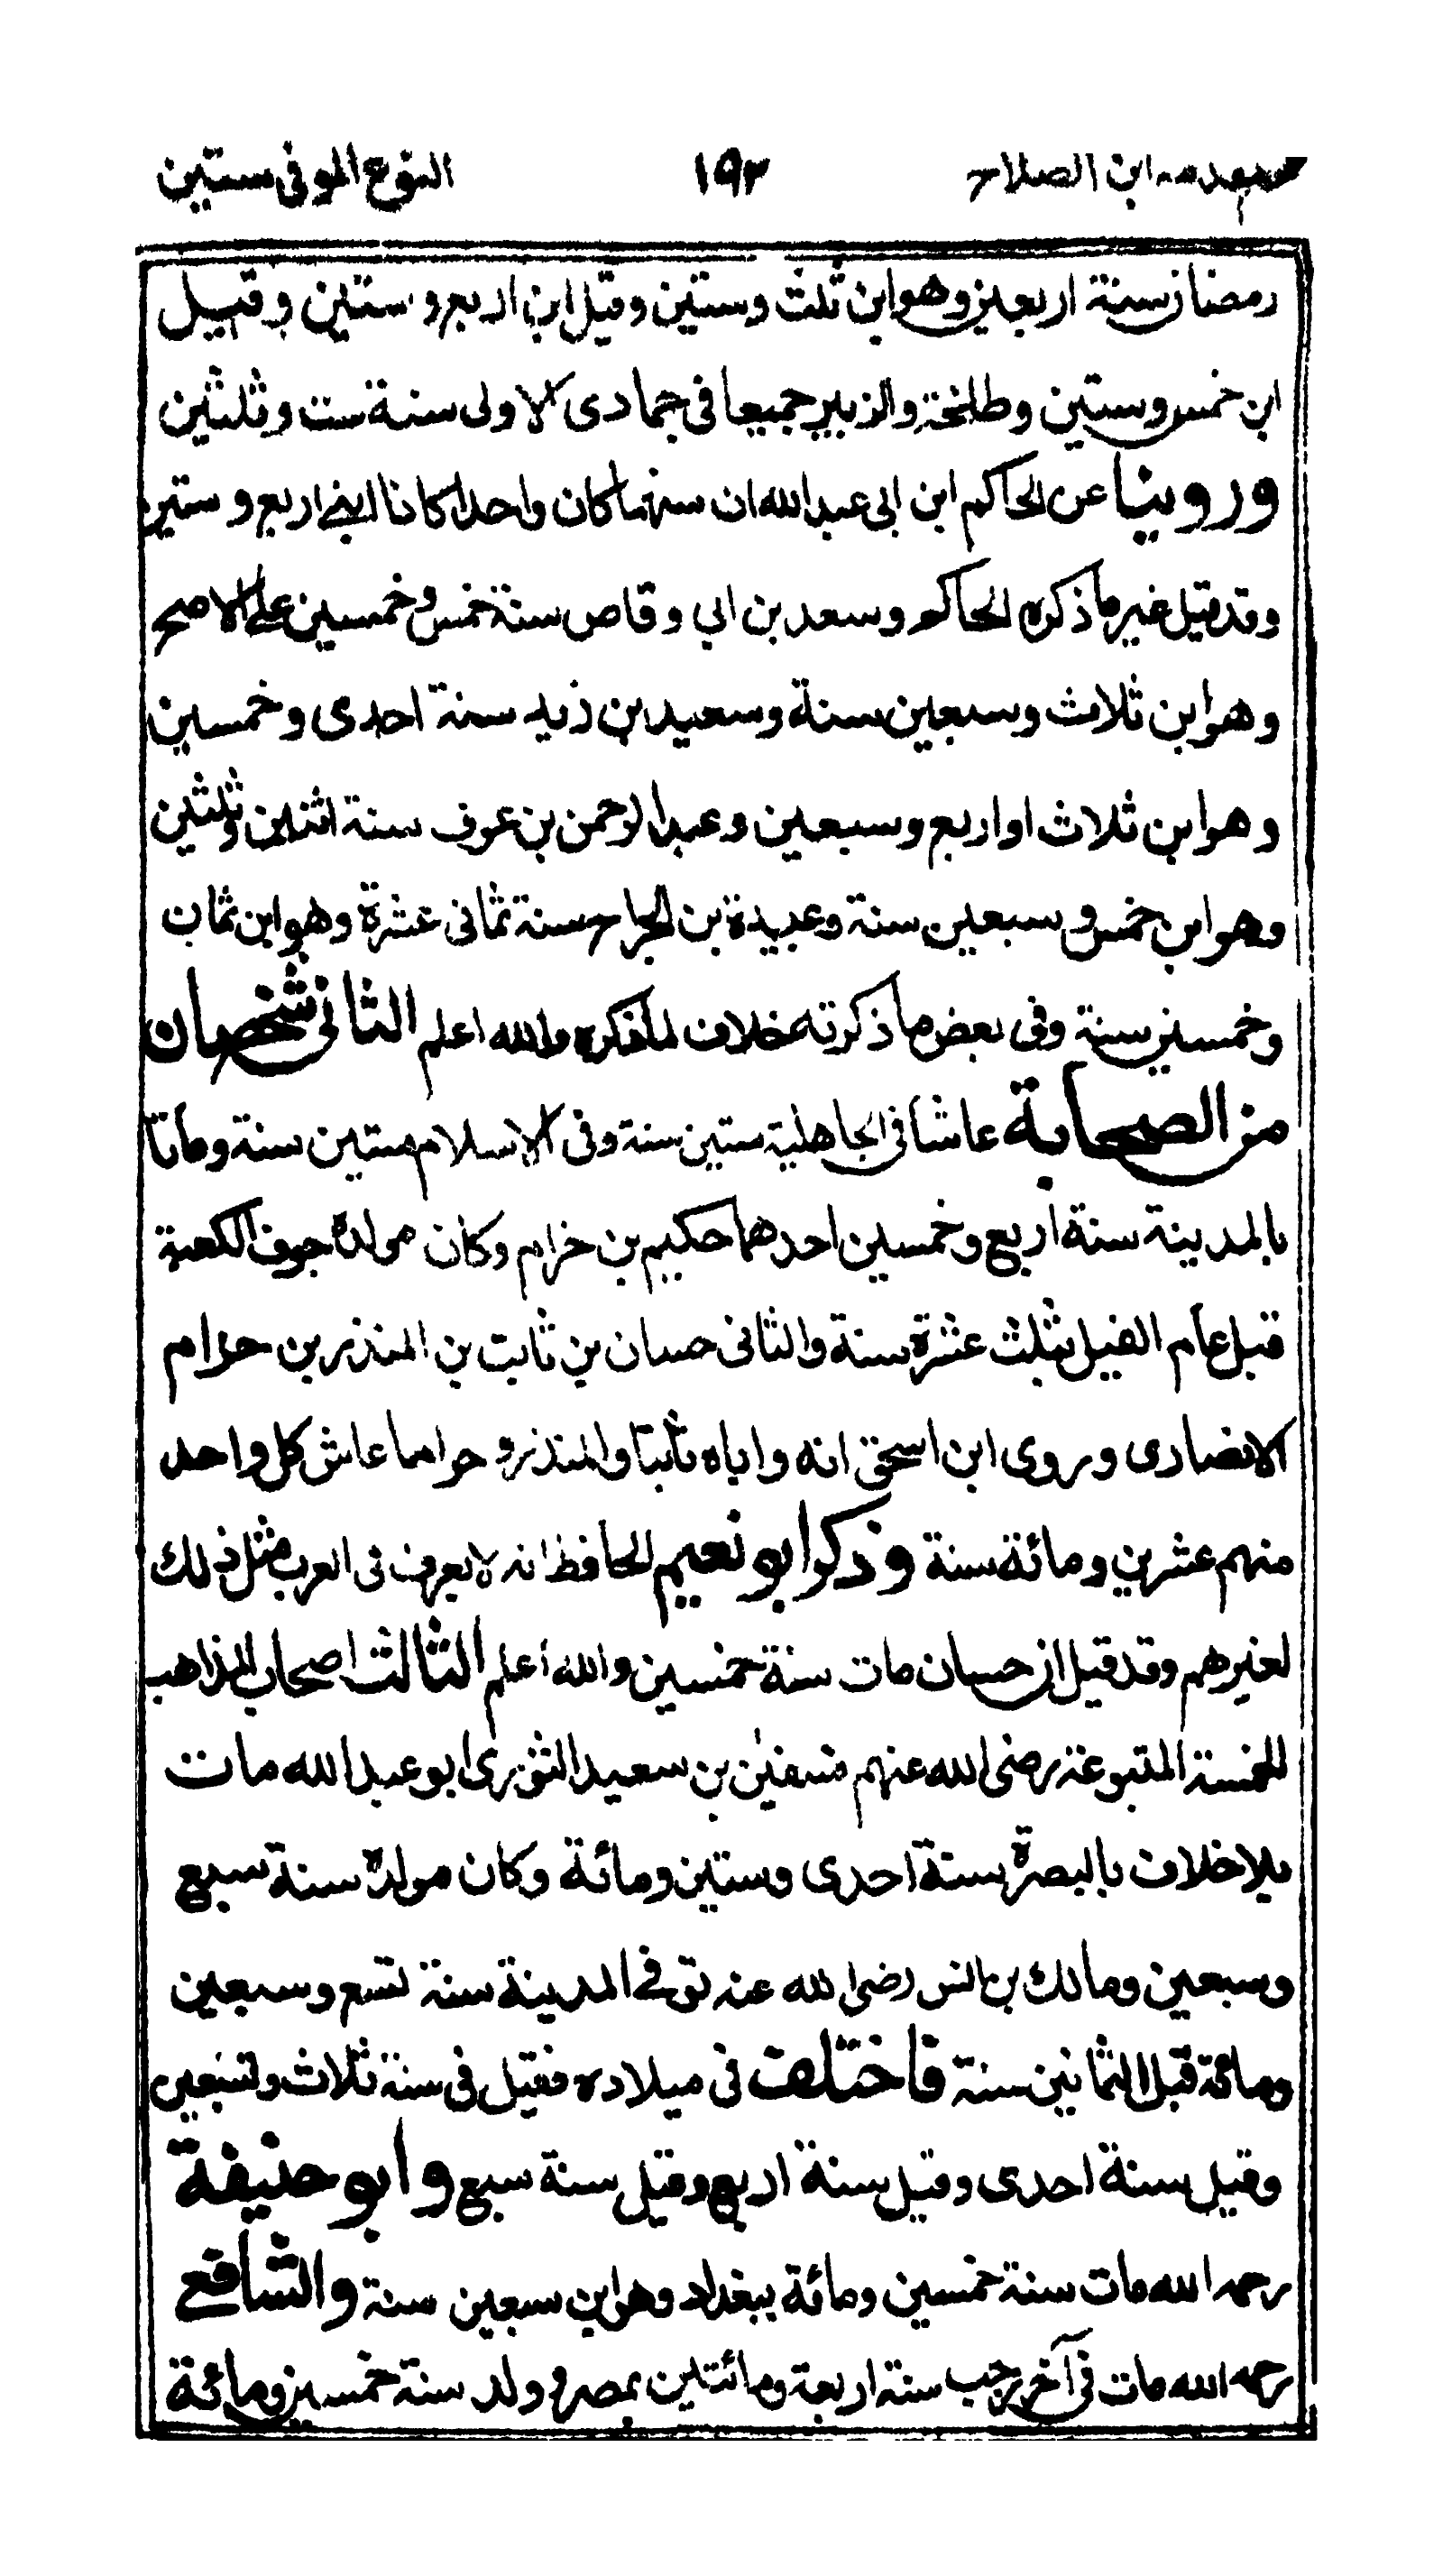 مقدمه ابن الصلاح ١٩٢ النوع الموفى ستين
رمضان سنة اربعين وهو ابن ثلث وستين وقيل ابن اربع وستين وقيل
ابن خمس وستين وطلحة والزبير جميعا فى جمادى الاولى سنة ست وثلثين
وروينا عن الحاكم ابن ابى عبد الله ان سنهما كان واحدا كانا ابنى اربع وستين
وقد قيل غير ما ذكره الحاكم وسعد بن ابى وقاص سنة خمس وخمسين على الاصح
وهو ابن ثلاث وسبعين سنة وسعيد بن زيد سنة احدى وخمسين
وهو ابن ثلاث او اربع وسبعين وعبد الرحمن بن عوف سنة اثنين وثلثين
وهو ابن خمس وسبعين سنة وعبيدة بن الجراح سنة ثمانى عشرة وهو ابن ثمان
وخمسين سنة وفى بعض ما ذكرته خلاف لم اذكره والله اعلم الثانى شخصان
من الصحابة عاشا فى الجاهلية ستين سنة وفى الاسلام ستين سنة وماتا
بالمدينة سنة اربع وخمسين احدهما حكيم بن خزام وكان مولده جوف الكعبة
قبل عام الفيل بثلث عشرة سنة والثانى حسان بن ثابت بن المنذر بن حرام
الانصارى وروى ابن اسحق انه واباه ثابتا والمنذر و حراما عاش كل واحد
منهم عشرين ومائة سنة وذكر ابو نعيم الحافظ انه لا يعرف فى العرب مثل ذلك
لغيرهم وقد قيل ان حسان مات سنة خمسين والله اعلم الثالث اصحاب المذاهب
الخمسة المتبوعة رضى الله عنهم فسفين بن سعيد الثورى ابو عبد الله مات
بلا خلاف بالبصرة سنة احدى وستين ومائة وكان مولده سنة سبع
وسبعين ومالك بن انس رضى الله عنه توفى المدينة سنة تسع وسبعين
ومائة قبل الثمانين سنة فاختلف فى ميلاده فقيل فى سنة ثلاث وتسعين
وقيل سنة احدى وقيل سنة اربع وقيل سنة سبع وابو حنيفة
رحمه الله مات سنة خمسين ومائة ببغداد وهو ابن سبعين سنة والشافعى
رحمه الله مات فى آخر رجب سنة اربعة ومائتين بمصر و ولد سنة خمسين ومائة